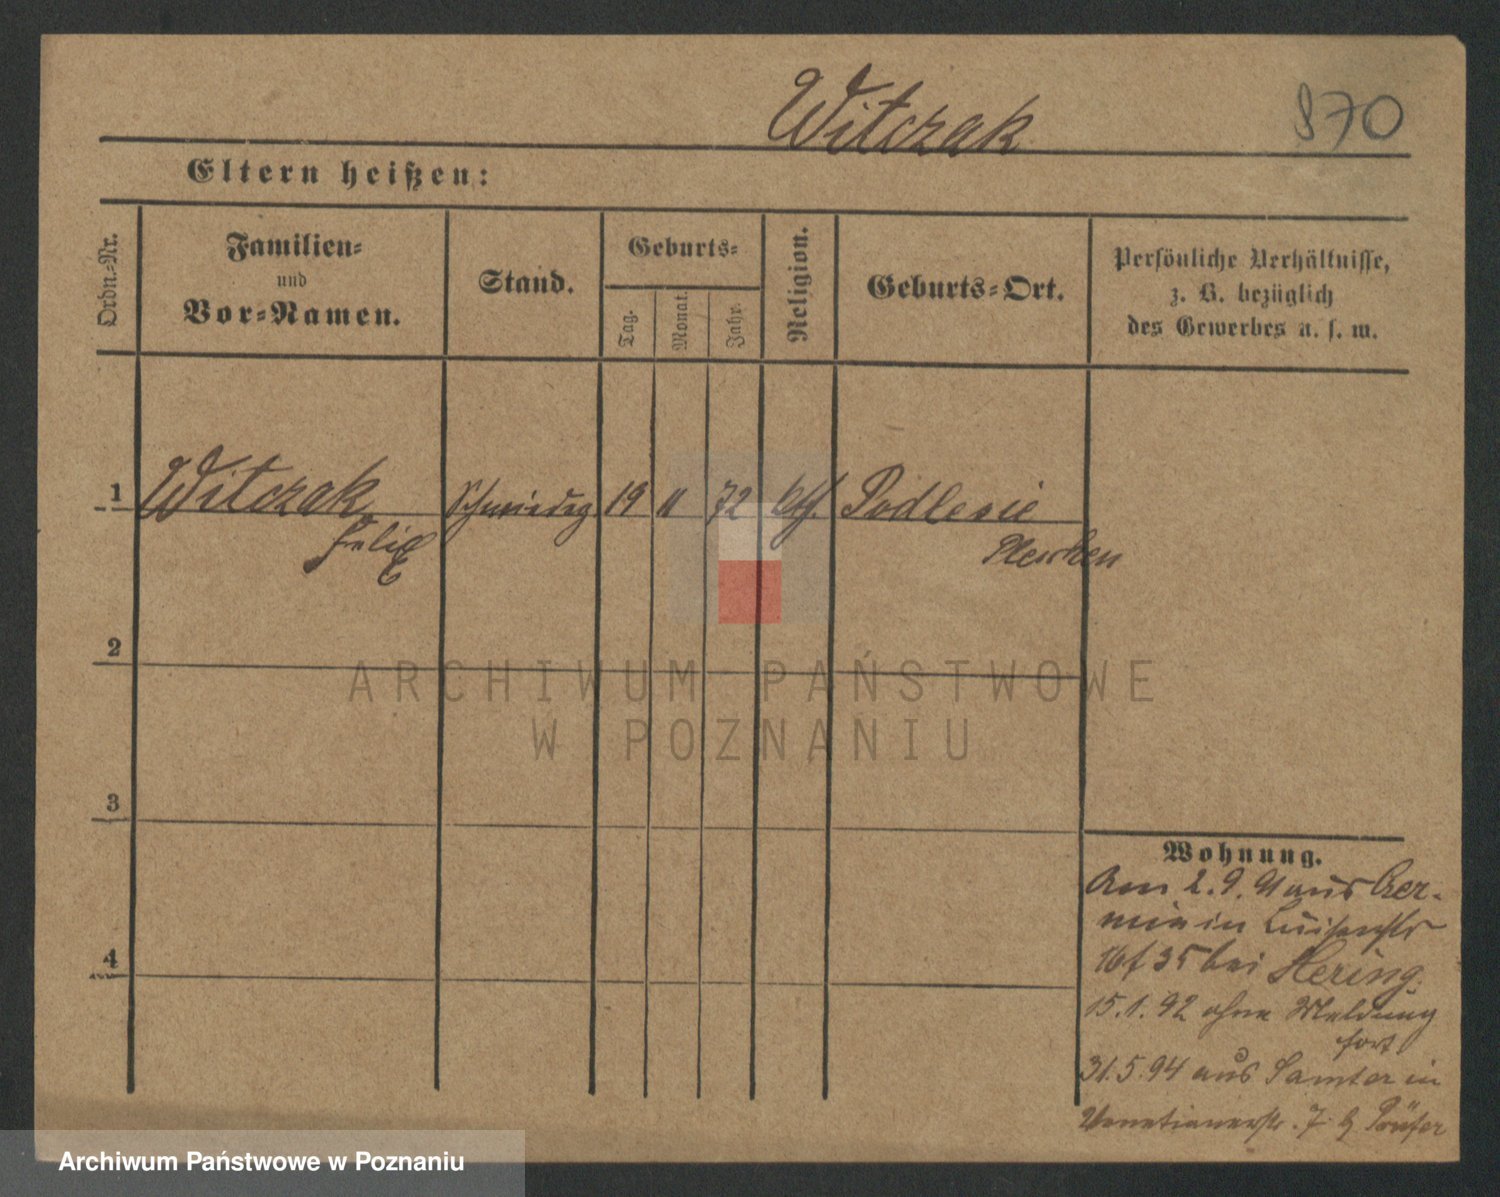 Witczak
870
Eltern heißen:
Ordn.-Nr.
Familien-
und
Vor-Namen.
Stand.
Geburts-
Tag.
Monat.
Jahr.
Religion.
Geburts-Ort.
Persönliche Verhältnisse,
z. B. bezüglich
des Gewerbes u. s. w.
1
Witczak
Felix
Schmiedeg
19
11
72
kth.
Podlesie
Pleschen
2
3
4
Wohnung.
Am 2.9.91 aus
in Luisenstr
16 f 35 bei Hering.
15.1.92 ohne Meldung
fort
31.5.94 aus Samter in
Venetianerstr. 7 b
ARCHIWUM PAŃSTWOWE
W POZNANIU
Archiwum Państwowe w Poznaniu